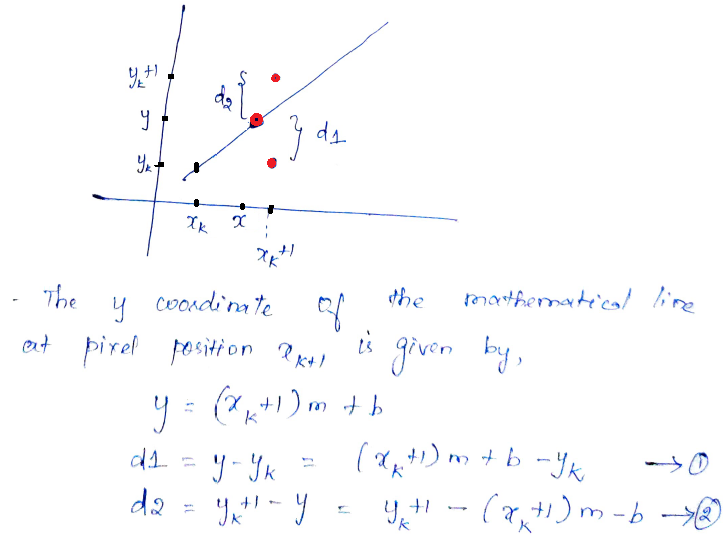 yₖ+1
d2
y
d1
yₖ
xₖ
x
xₖ+1
- The y coordinate of the mathematical line
at pixel position xₖ₊₁ is given by,
y = (xₖ+1) m + b
d1 = y - yₖ = (xₖ+1) m + b - yₖ → ①
d2 = yₖ+1 - y = yₖ+1 - (xₖ+1) m - b → ②